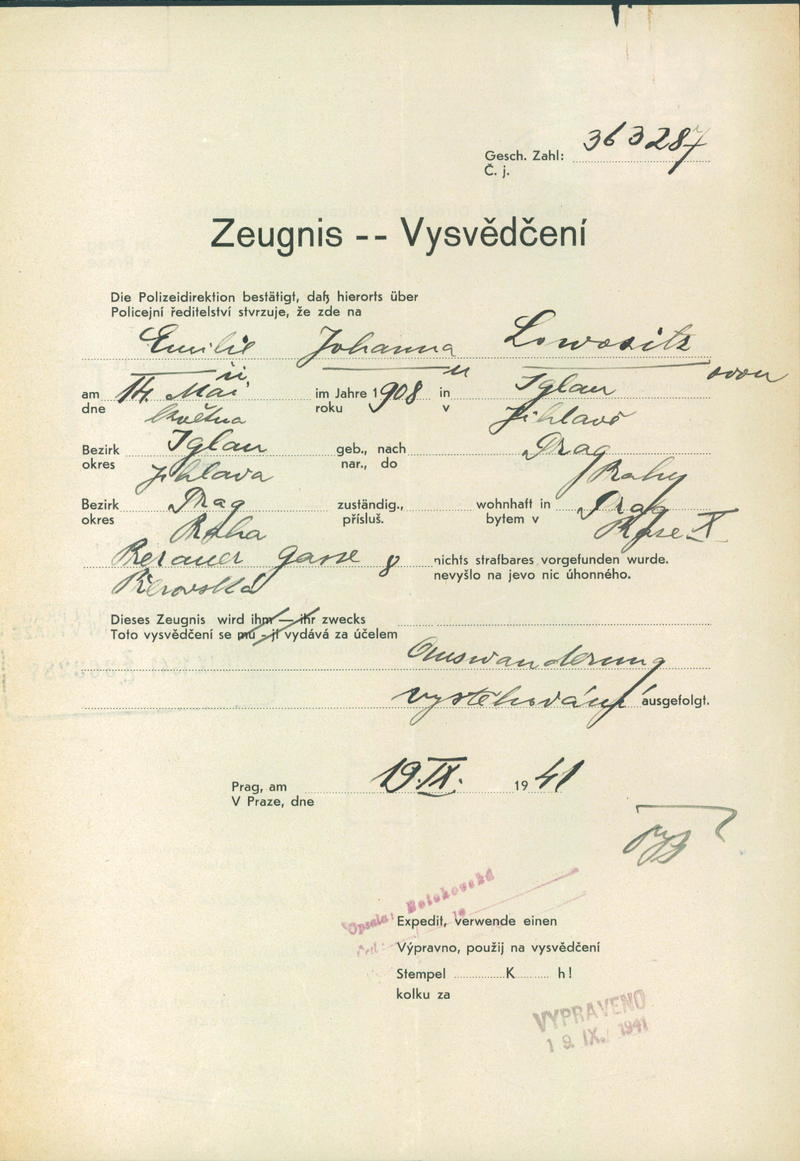 Gesch. Zahl: 363287
Č. j.
Zeugnis -- Vysvědčení
Die Polizeidirektion bestätigt, daß hierorts über
Policejní ředitelství stvrzuje, že zde na
Emilii Johannu Lowositz
ovou
am 14. Mai im Jahre 1908 in Iglau
dne května roku v Jihlavě
Bezirk Iglau geb., nach Prag
okres Jihlava nar., do Prahy
Bezirk Prag zuständig., wohnhaft in Prag
okres Praha přísluš. bytem v Praze X
gasse 8 nichts strafbares vorgefunden wurde.
nevyšlo na jevo nic úhonného.
Dieses Zeugnis wird ihm — ihr zwecks
Toto vysvědčení se mu - jí vydává za účelem
Auswanderung
vystěhování ausgefolgt.
Prag, am 19. IX. 1941
V Praze, dne
Opsala:
Expedit, verwende einen
Výpravno, použij na vysvědčení
Stempel K h!
kolku za
VYPRAVENO
19. IX. 1941